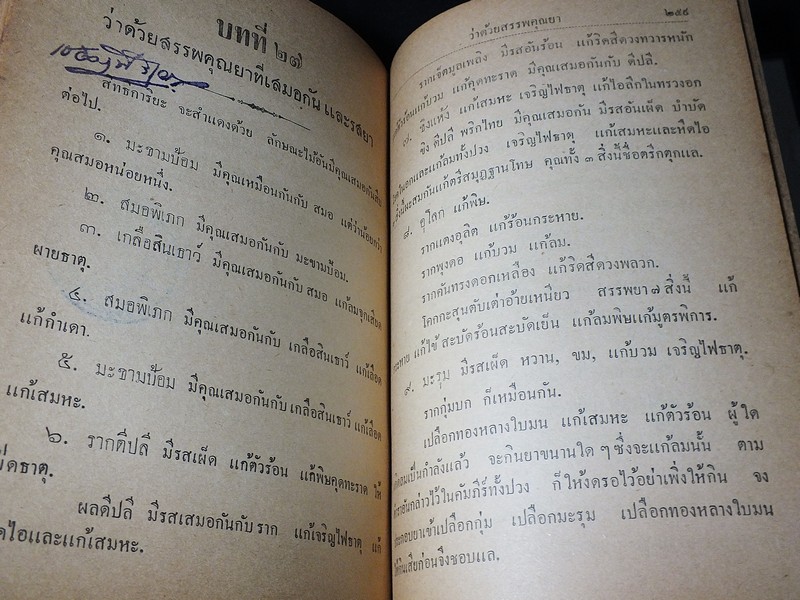 บทที่ ๒๗
ว่าด้วยสรรพคุณยาที่เสมอกัน และรสยา
สิทธิการิยะ จะสำแดงด้วย ลักษณะไม้อันมีคุณเสมอกันสืบ
ต่อไป.
๑. มะขามป้อม มีคุณเหมือนกันกับ สมอ แต่ว่าน้อยกว่า
คุณสมอหน่อยหนึ่ง.
๒. สมอพิเภก มีคุณเสมอกันกับ มะขามป้อม.
๓. เกลือสินเธาว์ มีคุณเสมอกันกับ สมอ แก้ลมจุกเสียด
ผายธาตุ.
๔. สมอพิเภก มีคุณเสมอกันกับ เกลือสินเธาว์ แก้เลือด
แก้กำเดา.
๕. มะขามป้อม มีคุณเสมอกันกับ เกลือสินเธาว์ แก้เลือด
แก้เสมหะ.
๖. รากดีปลี มีรสเผ็ด แก้ตัวร้อน แก้พิษคุดทะราด ให้
ธาตุ.
ผลดีปลี มีรสเสมอกันกับ ราก แก้เจริญไฟธาตุ แก้
ไอและแก้เสมหะ.
ว่าด้วยสรรพคุณยา
รากเจ็ตมูลเพลิง มีรสอันร้อน แก้ริดสีดวงทวารหนัก
แก้บวม แก้คุดทะราด มีคุณเสมอกันกับ ดีปลี.
๗. ขิงแห้ง แก้เสมหะ เจริญไฟธาตุ แก้ไอลึกในทรวงอก
ขิง ดีปลี พริกไทย มีคุณเสมอกัน มีรสอันเผ็ด บำบัด
และแก้ลมทั้งปวง เจริญไฟธาตุ แก้เสมหะและหืดไอ
ผะสมกันแก้ตรีสมุฏฐานโทษ คุณทั้ง ๓ สิ่งนี้ชื่อตรีกตุกแล.
๘. คุโลก แก้พิษ.
รากแตงอุลิต แก้ร้อนกระหาย.
รากพุงดอ แก้บวม แก้ลม.
รากคันทรงดอกเหลือง แก้ริดสีดวงพลวก.
โคกกะสุนตับเต่าอ้ายเหนียว สรรพยา ๗ สิ่งนี้ แก้
แก้ไข้ สะบัดร้อนสะบัดเย็น แก้ลมพิษแก้มูตรพิการ.
๙. มะรุม มีรสเผ็ด หวาน, ขม, แก้บวม เจริญไฟธาตุ.
รากกุ่มบก ก็เหมือนกัน.
เปลือกทองหลางใบมน แก้เสมหะ แก้ตัวร้อน ผู้ใด
เป็นกำลังแล้ว จะกินยาขนานใด ๆ ซึ่งจะแก้ลมนั้น ตาม
กล่าวไว้ในคัมภีร์ทั้งปวง ก็ให้งดรอไว้อย่าเพิ่งให้กิน จง
ประกอบยาเข้าเปลือกกุ่ม เปลือกมะรุม เปลือกทองหลางใบมน
กินเสียก่อนจึงชอบแล.